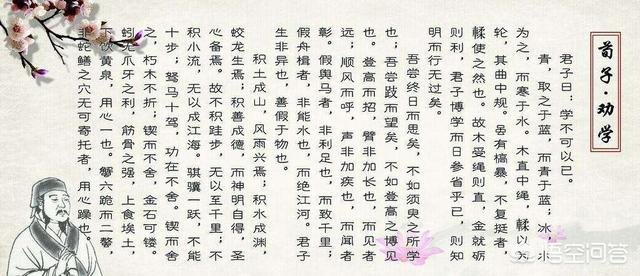 荀子·劝学
君子曰：学不可以已。
青，取之于蓝，而青于蓝；冰，水
为之，而寒于水。木直中绳，輮以为
轮，其曲中规。虽有槁暴，不复挺者，
輮使之然也。故木受绳则直，金就砺
则利，君子博学而日参省乎己，则知
明而行无过矣。
吾尝终日而思矣，不如须臾之所学
也。吾尝跂而望矣，不如登高之博见
也。登高而招，臂非加长也，而见者
远；顺风而呼，声非加疾也，而闻者
彰。假舆马者，非利足也，而致千里；
假舟楫者，非能水也，而绝江河。君子
生非异也，善假于物也。
积土成山，风雨兴焉；积水成渊，
蛟龙生焉；积善成德，而神明自得，圣
心备焉。故不积跬步，无以至千里；不
积小流，无以成江海。骐骥一跃，不能
十步；驽马十驾，功在不舍。锲而舍
之，朽木不折；锲而不舍，金石可镂。
蚓无爪牙之利，筋骨之强，上食埃土，
下饮黄泉，用心一也。蟹六跪而二螯，
非蛇鳝之穴无可寄托者，用心躁也。
悟空问答